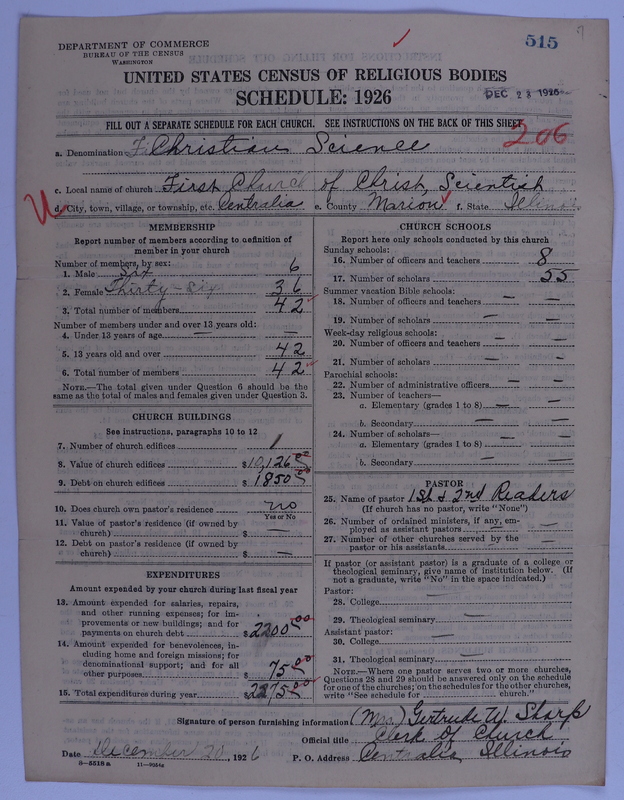 515
DEPARTMENT OF COMMERCE
BUREAU OF THE CENSUS
WASHINGTON
UNITED STATES CENSUS OF RELIGIOUS BODIES
SCHEDULE: 1926
DEC 28 1926
FILL OUT A SEPARATE SCHEDULE FOR EACH CHURCH. SEE INSTRUCTIONS ON THE BACK OF THIS SHEET
206
a. Denomination Christian Science
c. Local name of church First Church of Christ, Scientist
d. City, town, village, or township, etc. Centralia e. County Marion f. State Illinois
MEMBERSHIP
Report number of members according to definition of
member in your church
Number of members, by sex:
1. Male Six 6
2. Female Thirty-Six 36
3. Total number of members 42
Number of members under and over 13 years old:
4. Under 13 years of age — —
5. 13 years old and over 42
6. Total number of members 42
NOTE.—The total given under Question 6 should be the
same as the total of males and females given under Question 3.
CHURCH BUILDINGS
See instructions, paragraphs 10 to 12
7. Number of church edifices 1
8. Value of church edifices $10,126 00
9. Debt on church edifices $1850 00
10. Does church own pastor's residence no
Yes or No
11. Value of pastor's residence (if owned by
church) $ —
12. Debt on pastor's residence (if owned by
church) $ —
EXPENDITURES
Amount expended by your church during last fiscal year
13. Amount expended for salaries, repairs,
and other running expenses; for im-
provements or new buildings; and for
payments on church debt $2200 00
14. Amount expended for benevolences, in-
cluding home and foreign missions; for
denominational support; and for all
other purposes $75 00
15. Total expenditures during year $2275 00
CHURCH SCHOOLS
Report here only schools conducted by this church
Sunday schools:
16. Number of officers and teachers 8
17. Number of scholars 55
Summer vacation Bible schools:
18. Number of officers and teachers — —
19. Number of scholars — —
Week-day religious schools:
20. Number of officers and teachers — —
21. Number of scholars — —
Parochial schools:
22. Number of administrative officers — —
23. Number of teachers—
a. Elementary (grades 1 to 8) — —
b. Secondary — —
24. Number of scholars—
a. Elementary (grades 1 to 8) — —
b. Secondary — —
PASTOR
25. Name of pastor 1st & 2nd Readers
(If church has no pastor, write "None")
26. Number of ordained ministers, if any, em-
ployed as assistant pastors — —
27. Number of other churches served by the
pastor or his assistants —
If pastor (or assistant pastor) is a graduate of a college or
theological seminary, give name of institution below. (If
not a graduate, write "No" in the space indicated.)
Pastor:
28. College —
29. Theological seminary —
Assistant pastor:
30. College —
31. Theological seminary —
NOTE.—Where one pastor serves two or more churches,
Questions 28 and 29 should be answered only on the schedule
for one of the churches; on the schedules for the other churches,
write "See schedule for church."
Signature of person furnishing information (Mrs.) Gertrude W. Sharp
Official title Clerk of Church
Date December 20, 1926 P. O. Address Centralia Illinois
8—5518 a 11—9054a